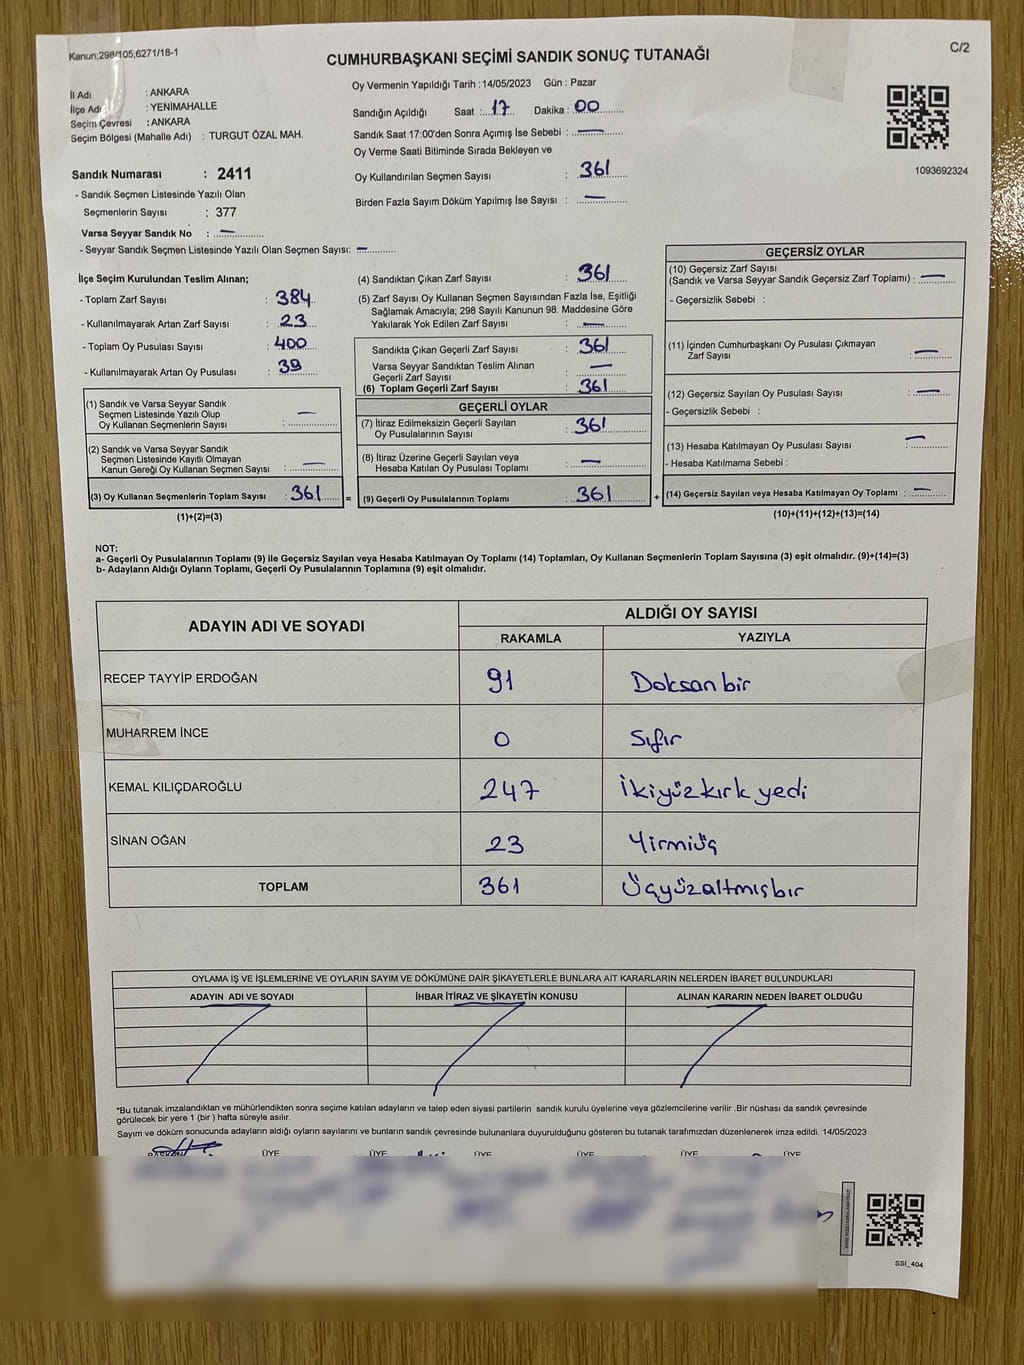 Kanun;298/105;6271/18-1
C/2
CUMHURBAŞKANI SEÇİMİ SANDIK SONUÇ TUTANAĞI
Oy Vermenin Yapıldığı Tarih :14/05/2023 Gün : Pazar
İl Adı : ANKARA
İlçe Adı : YENİMAHALLE
Seçim Çevresi : ANKARA
Seçim Bölgesi (Mahalle Adı) : TURGUT ÖZAL MAH.
Sandığın Açıldığı Saat : 17 Dakika : 00
Sandık Saat 17:00'den Sonra Açımış İse Sebebi : —
Oy Verme Saati Bitiminde Sırada Bekleyen ve
Oy Kullandırılan Seçmen Sayısı : 361
Birden Fazla Sayım Döküm Yapılmış İse Sayısı : —
1093692324
Sandık Numarası : 2411
- Sandık Seçmen Listesinde Yazılı Olan
Seçmenlerin Sayısı : 377
Varsa Seyyar Sandık No : —
- Seyyar Sandık Seçmen Listesinde Yazılı Olan Seçmen Sayısı: —
İlçe Seçim Kurulundan Teslim Alınan;
- Toplam Zarf Sayısı : 384
- Kullanılmayarak Artan Zarf Sayısı : 23
- Toplam Oy Pusulası Sayısı : 400
- Kullanılmayarak Artan Oy Pusulası : 39
(1) Sandık ve Varsa Seyyar Sandık
Seçmen Listesinde Yazılı Olup
Oy Kullanan Seçmenlerin Sayısı : —
(2) Sandık ve Varsa Seyyar Sandık
Seçmen Listesinde Kayıtlı Olmayan
Kanun Gereği Oy Kullanan Seçmen Sayısı : —
(3) Oy Kullanan Seçmenlerin Toplam Sayısı : 361 =
(1)+(2)=(3)
(4) Sandıktan Çıkan Zarf Sayısı : 361
(5) Zarf Sayısı Oy Kullanan Seçmen Sayısından Fazla İse, Eşitliği
Sağlamak Amacıyla; 298 Sayılı Kanunun 98. Maddesine Göre
Yakılarak Yok Edilen Zarf Sayısı : —
Sandıkta Çıkan Geçerli Zarf Sayısı : 361
Varsa Seyyar Sandıktan Teslim Alınan
Geçerli Zarf Sayısı : —
(6) Toplam Geçerli Zarf Sayısı : 361
GEÇERLİ OYLAR
(7) İtiraz Edilmeksizin Geçerli Sayılan
Oy Pusulalarının Sayısı : 361
(8) İtiraz Üzerine Geçerli Sayılan veya
Hesaba Katılan Oy Pusulası Toplamı : —
(9) Geçerli Oy Pusulalarının Toplamı : 361 +
GEÇERSİZ OYLAR
(10) Geçersiz Zarf Sayısı
(Sandık ve Varsa Seyyar Sandık Geçersiz Zarf Toplamı) : —
- Geçersizlik Sebebi :
(11) İçinden Cumhurbaşkanı Oy Pusulası Çıkmayan
Zarf Sayısı : —
(12) Geçersiz Sayılan Oy Pusulası Sayısı : —
- Geçersizlik Sebebi :
(13) Hesaba Katılmayan Oy Pusulası Sayısı : —
- Hesaba Katılmama Sebebi :
(14) Geçersiz Sayılan veya Hesaba Katılmayan Oy Toplamı : —
(10)+(11)+(12)+(13)=(14)
NOT:
a- Geçerli Oy Pusulalarının Toplamı (9) ile Geçersiz Sayılan veya Hesaba Katılmayan Oy Toplamı (14) Toplamları, Oy Kullanan Seçmenlerin Toplam Sayısına (3) eşit olmalıdır. (9)+(14)=(3)
b- Adayların Aldığı Oyların Toplamı, Geçerli Oy Pusulalarının Toplamına (9) eşit olmalıdır.
ADAYIN ADI VE SOYADI
ALDIĞI OY SAYISI
RAKAMLA YAZIYLA
RECEP TAYYİP ERDOĞAN 91 Doksan bir
MUHARREM İNCE 0 Sıfır
KEMAL KILIÇDAROĞLU 247 İkiyüzkırk yedi
SİNAN OĞAN 23 Yirmiüç
TOPLAM 361 Üçyüzaltmışbir
OYLAMA İŞ VE İŞLEMLERİNE VE OYLARIN SAYIM VE DÖKÜMÜNE DAİR ŞİKAYETLERLE BUNLARA AİT KARARLARIN NELERDEN İBARET BULUNDUKLARI
ADAYIN ADI VE SOYADI İHBAR İTİRAZ VE ŞİKAYETİN KONUSU ALINAN KARARIN NEDEN İBARET OLDUĞU
*Bu tutanak imzalandıktan ve mühürlendikten sonra seçime katılan adayların ve talep eden siyasi partilerin sandık kurulu üyelerine veya gözlemcilerine verilir .Bir nüshası da sandık çevresinde
görülecek bir yere 1 (bir ) hafta süreyle asılır.
Sayım ve döküm sonucunda adayların aldığı oyların sayılarını ve bunların sandık çevresinde bulunanlara duyurulduğunu gösteren bu tutanak tarafımızdan düzenlenerek imza edildi. 14/05/2023
BAŞKAN ÜYE ÜYE ÜYE ÜYE ÜYE ÜYE
SSI_404